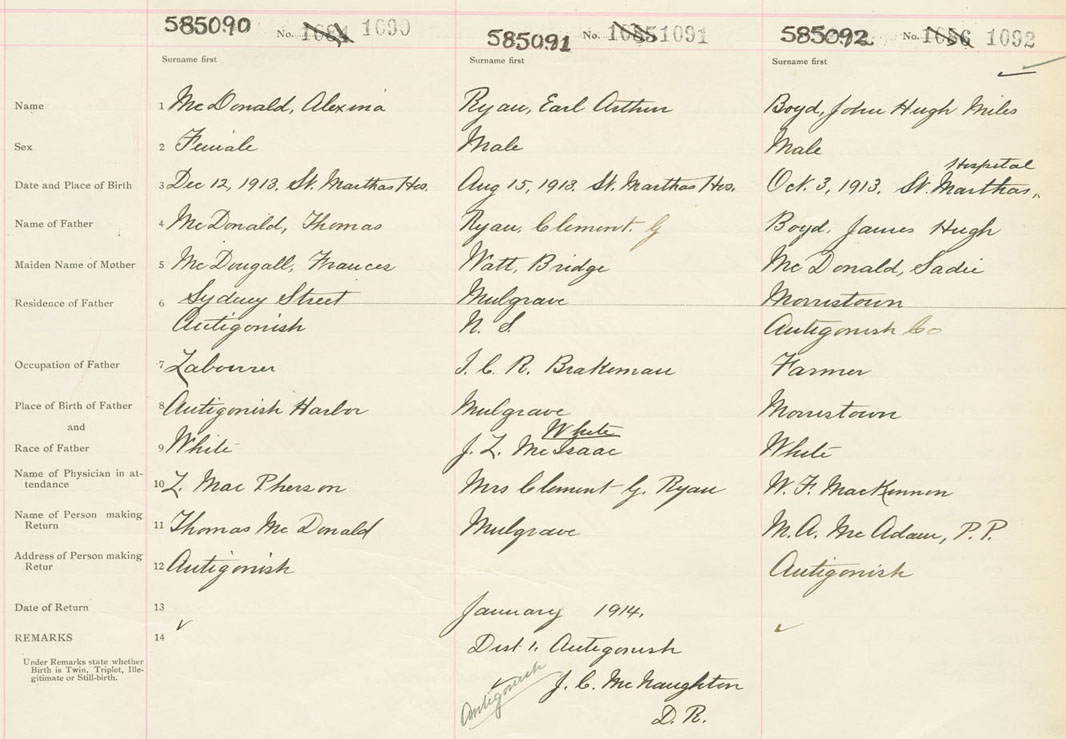 585090 No. 1090 585091 No. 1085 1091 585092 No. 1086 1092
Surname first Surname first Surname first
Name 1 McDonald, Alexina Ryan, Earl Arthur Boyd, John Hugh Miles
Sex 2 Female Male Male
Hospital
Date and Place of Birth 3 Dec 12, 1913. St. Marthas Hos. Aug 15, 1913. St. Marthas Hos. Oct. 3, 1913. St. Marthas,,
Name of Father 4 McDonald, Thomas Ryan, Clement. G Boyd, James Hugh
Maiden Name of Mother 5 McDougall, Frances Watt, Bridge McDonald, Sadie
Residence of Father 6 Sydney Street Mulgrave Morristown
Antigonish N. S Antigonish Co
Occupation of Father 7 Labourer I. C. R. Brakeman Farmer
Place of Birth of Father 8 Antigonish Harbor Mulgrave Morristown
and White
Race of Father 9 White J. L. McIsaac White
Name of Physician in at-
tendance 10 L. MacPherson Mrs Clement G. Ryan W. F. MacKinnon
Name of Person making
Return 11 Thomas McDonald Mulgrave M. A. McAdam, P. P.
Address of Person making
Retur 12 Antigonish Antigonish
Date of Return 13 January 1914.
REMARKS 14 Dist 1, Antigonish
Under Remarks state whether
Birth is Twin, Triplet, Ille-
gitimate or Still-birth.
Antigonish J. C. McNaughton
D. R.